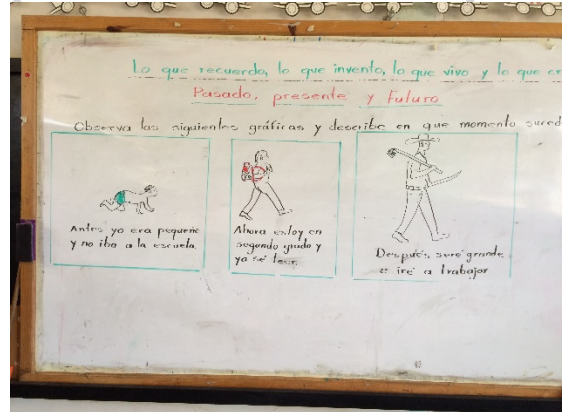 Lo que recuerdo, lo que invento, lo que vivo y lo que
Pasado, presente y Futuro
Observa las siguientes gráficas y describe en que momento
Antes yo era pequeño
y no iba a la escuela.
Ahora estoy en
segundo grado y
ya sé leer.
Después seré grande
e iré a trabajar